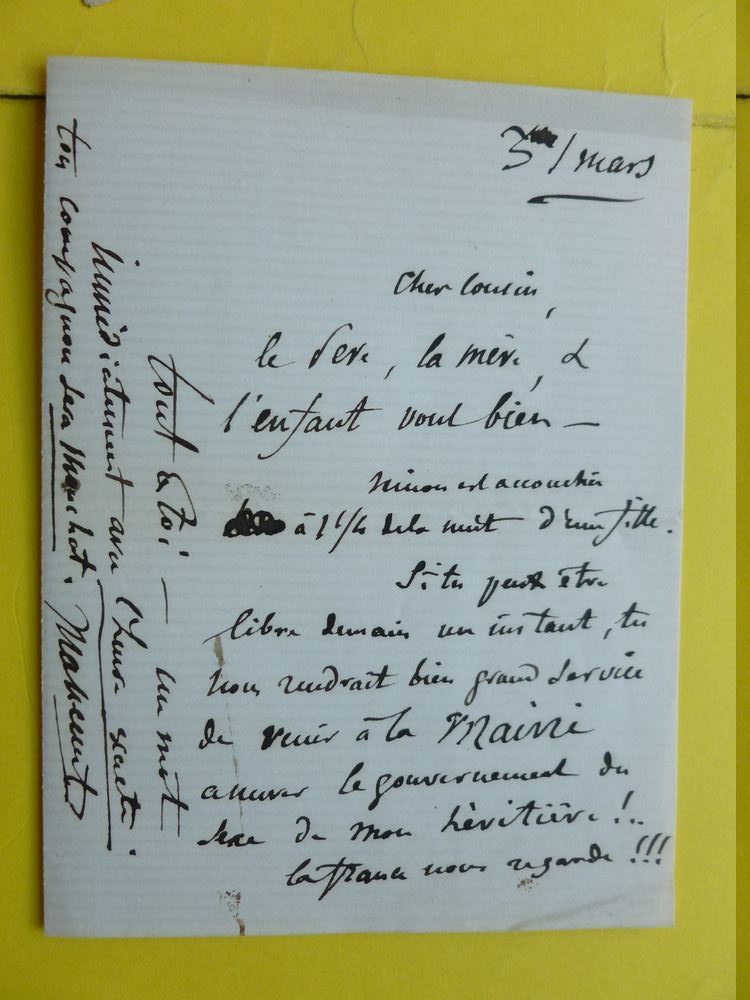 3 / mars
Cher Cousin,
le Père, la mère, &
l'enfant vont bien —
Ninon est accouchée
à 1 1/4 de la nuit d'une fille.
Si tu peux être
libre demain un instant, tu
nous rendrait bien grand service
de venir à la Mairie
assurer le gouvernement du
sexe de mon héritière !..
la france nous regarde !!!
tout à toi — un mot
immédiatement avec l'heure exacte.
ton compagnon sera Manchot.